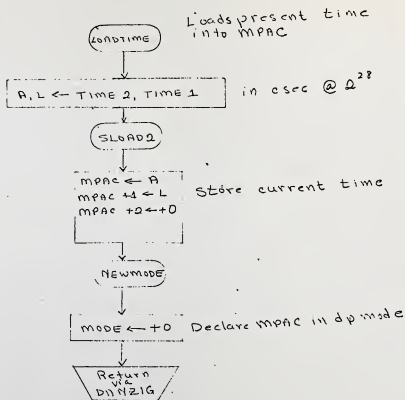 Loads present time
into MPAC
LOADTIME
A, L ← TIME 2, TIME 1
in csec @ 2^28
SLOAD2
MPAC ← A
MPAC +1 ← L
MPAC +2 ← +0
Store current time
NEWMODE
MODE ← +0
Declare MPAC in dp mode
Return
via
DANZIG